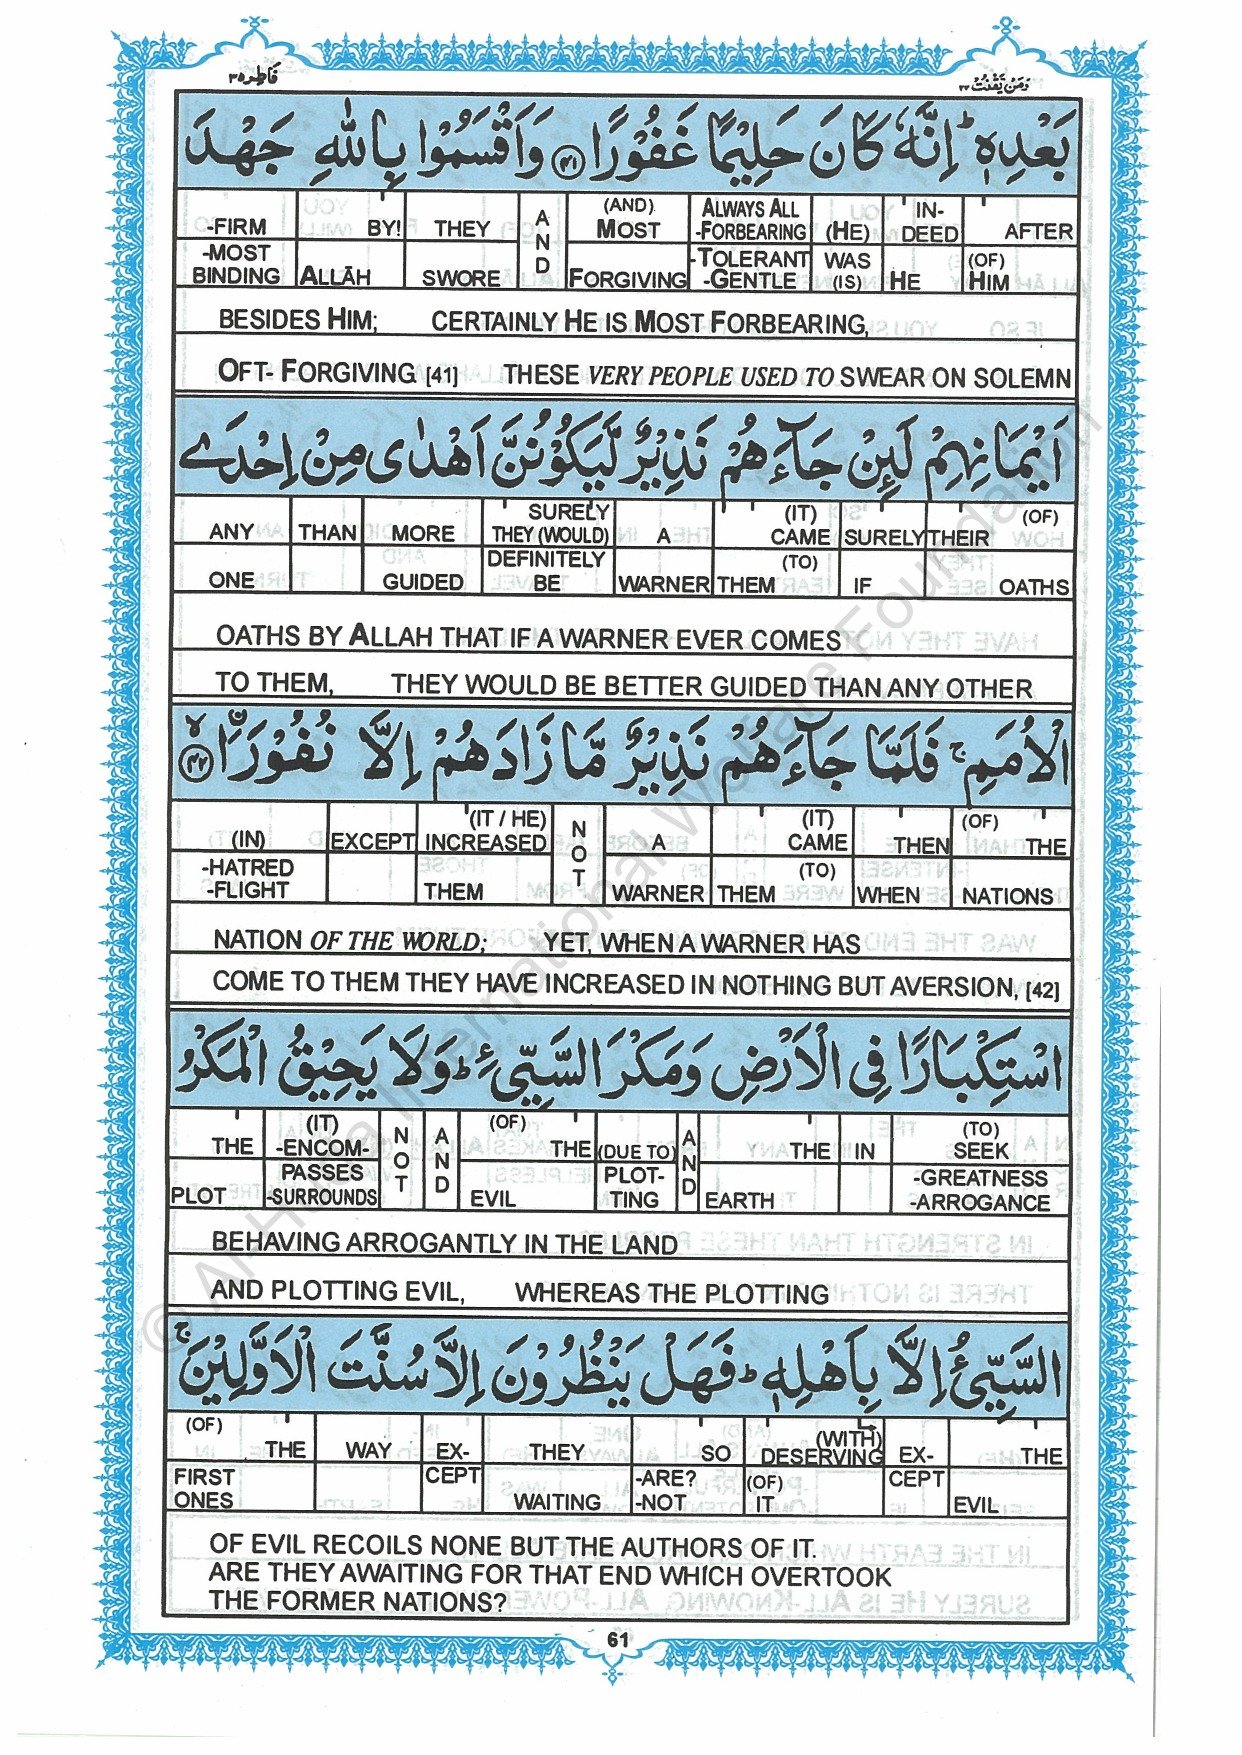 فاطر ٣٥
ومن يقنت ٢٢
بَعْدِهٖ ؕ اِنَّهٗ كَانَ حَلِيْمًا غَفُوْرًا ﴿۴۱﴾ وَاَقْسَمُوْا بِاللّٰهِ جَهْدَ
-FIRM BY! THEY AND (AND) MOST ALWAYS ALL -FORBEARING (HE) IN-DEED AFTER
-MOST BINDING ALLĀH SWORE FORGIVING -TOLERANT -GENTLE WAS (IS) HE (OF) HIM
BESIDES HIM; CERTAINLY HE IS MOST FORBEARING,
OFT- FORGIVING [41] THESE VERY PEOPLE USED TO SWEAR ON SOLEMN
اَيْمَانِهِمْ لَئِنْ جَآءَهُمْ نَذِيْرٌ لَّيَكُوْنُنَّ اَهْدٰى مِنْ اِحْدَى
ANY THAN MORE SURELY THEY (WOULD) A (IT) CAME SURELY THEIR (OF)
ONE GUIDED DEFINITELY BE WARNER THEM (TO) IF OATHS
OATHS BY ALLAH THAT IF A WARNER EVER COMES
TO THEM, THEY WOULD BE BETTER GUIDED THAN ANY OTHER
الْاُمَمِ ۚ فَلَمَّا جَآءَهُمْ نَذِيْرٌ مَّا زَادَهُمْ اِلَّا نُفُوْرًا ﴿۴۲﴾
(IN) EXCEPT (IT / HE) INCREASED NOT A (IT) CAME THEN (OF) THE
-HATRED -FLIGHT THEM WARNER THEM (TO) WHEN NATIONS
NATION OF THE WORLD; YET, WHEN A WARNER HAS
COME TO THEM THEY HAVE INCREASED IN NOTHING BUT AVERSION, [42]
اسْتِكْبَارًا فِى الْاَرْضِ وَمَكْرَ السَّيِّئِ ؕ وَلَا يَحِيْقُ الْمَكْرُ
THE (IT) -ENCOM- NOT AND (OF) THE (DUE TO) AND THE IN (TO) SEEK
PLOT PASSES -SURROUNDS EVIL PLOT-TING EARTH -GREATNESS -ARROGANCE
BEHAVING ARROGANTLY IN THE LAND
AND PLOTTING EVIL, WHEREAS THE PLOTTING
السَّيِّئُ اِلَّا بِاَهْلِهٖ ؕ فَهَلْ يَنْظُرُوْنَ اِلَّا سُنَّتَ الْاَوَّلِيْنَ ۚ
(OF) THE WAY EX- THEY SO (WITH) DESERVING EX- THE
FIRST ONES CEPT WAITING -ARE? -NOT (OF) IT CEPT EVIL
OF EVIL RECOILS NONE BUT THE AUTHORS OF IT.
ARE THEY AWAITING FOR THAT END WHICH OVERTOOK
THE FORMER NATIONS?
61
© Al-Huda International Welfare Foundation